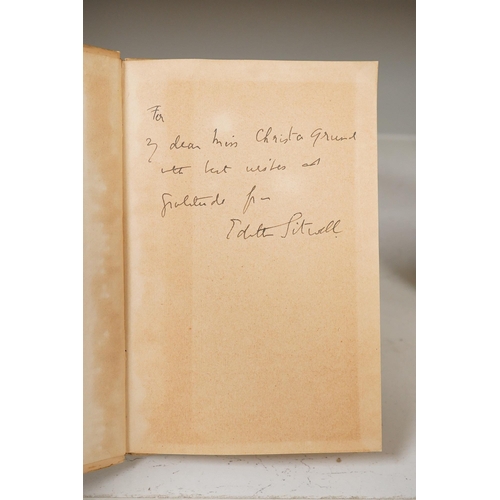 For
my dear Miss Christa Grund
with best wishes and
gratitude from
Edith Sitwell